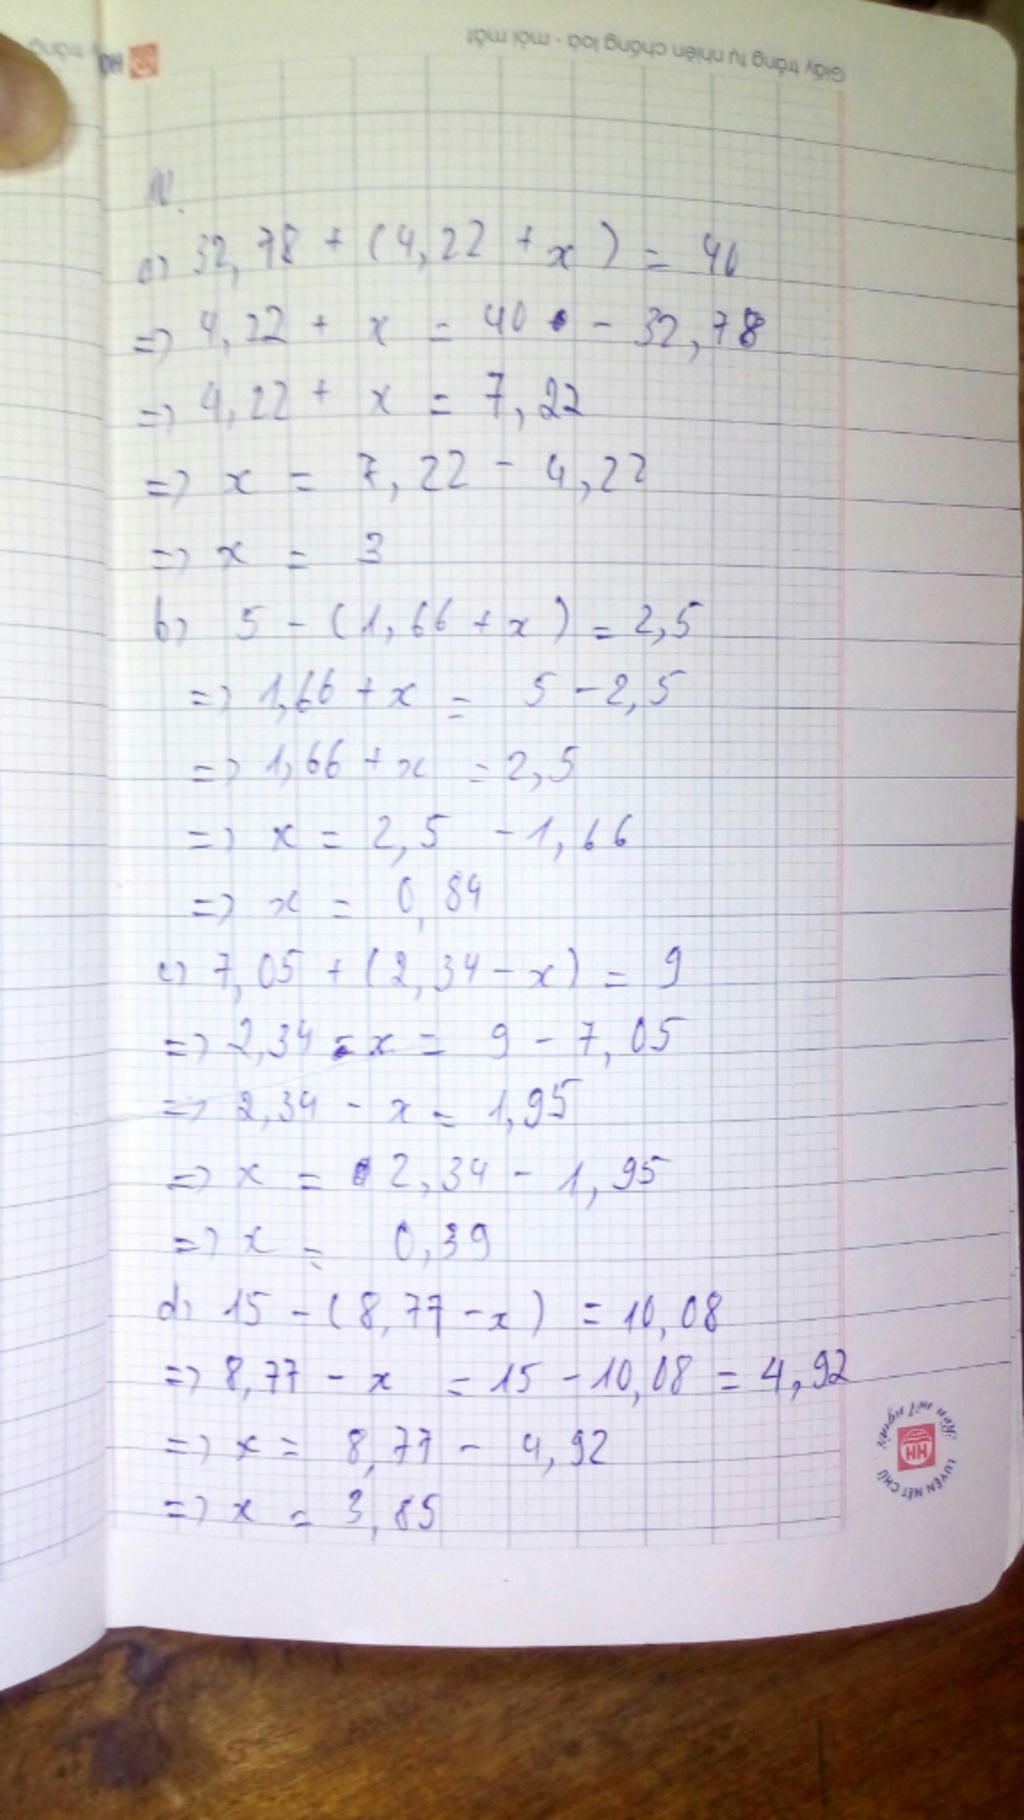 Giấy trắng tự nhiên chống loá - mỏi mắt
IV.
a) 32,78 + (4,22 + x) = 40
=> 4,22 + x = 40 - 32,78
=> 4,22 + x = 7,22
=> x = 7,22 - 4,22
=> x = 3
b) 5 - (1,66 + x) = 2,5
=> 1,66 + x = 5 - 2,5
=> 1,66 + x = 2,5
=> x = 2,5 - 1,66
=> x = 0,84
c) 7,05 + (2,34 - x) = 9
=> 2,34 - x = 9 - 7,05
=> 2,34 - x = 1,95
=> x = 2,34 - 1,95
=> x = 0,39
d) 15 - (8,77 - x) = 10,08
=> 8,77 - x = 15 - 10,08 = 4,92
=> x = 8,77 - 4,92
=> x = 3,85
LUYỆN NÉT CHỮ
Rèn nết người
HH